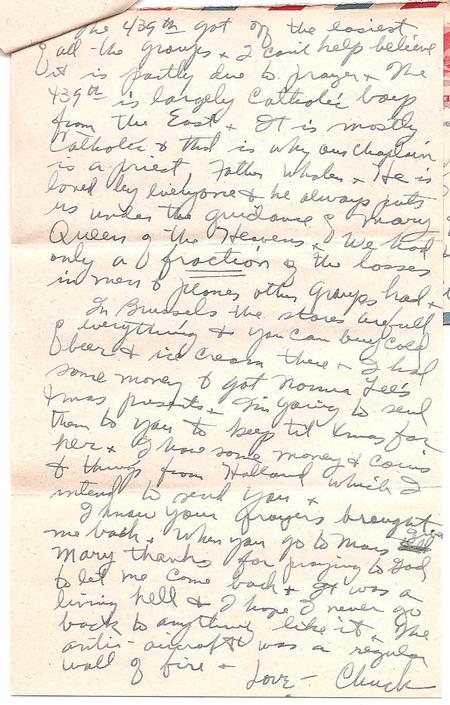 The 439th got off the easiest
of all the groups + I can't help believe
it is partly due to prayer + The
439th is largely Catholic boys
from the East + It is mostly
Catholic + that is why our chaplain
is a priest Father Whalen + He is
loved by everyone + he always puts
us under the guidance of Mary
Queen of the Heavens + We had
only a fraction of the losses
in men + planes other groups had +
In Brussels the stores are full
of everything + you can buy cold
beer + ice cream there + I had
some money + got Norma Lee's
Xmas presents + I'm going to send
them to you to keep til Xmas for
her + I have some money + coins
+ things from Holland which I
intend to send you +
I know your prayers brought
me back + When you go to Mass
Mary thanks for praying to God
to let me come back + It was a
living hell + I hope I never go
back to anything like it + The
anti-aircraft was a regular
wall of fire +
Love - Chuck